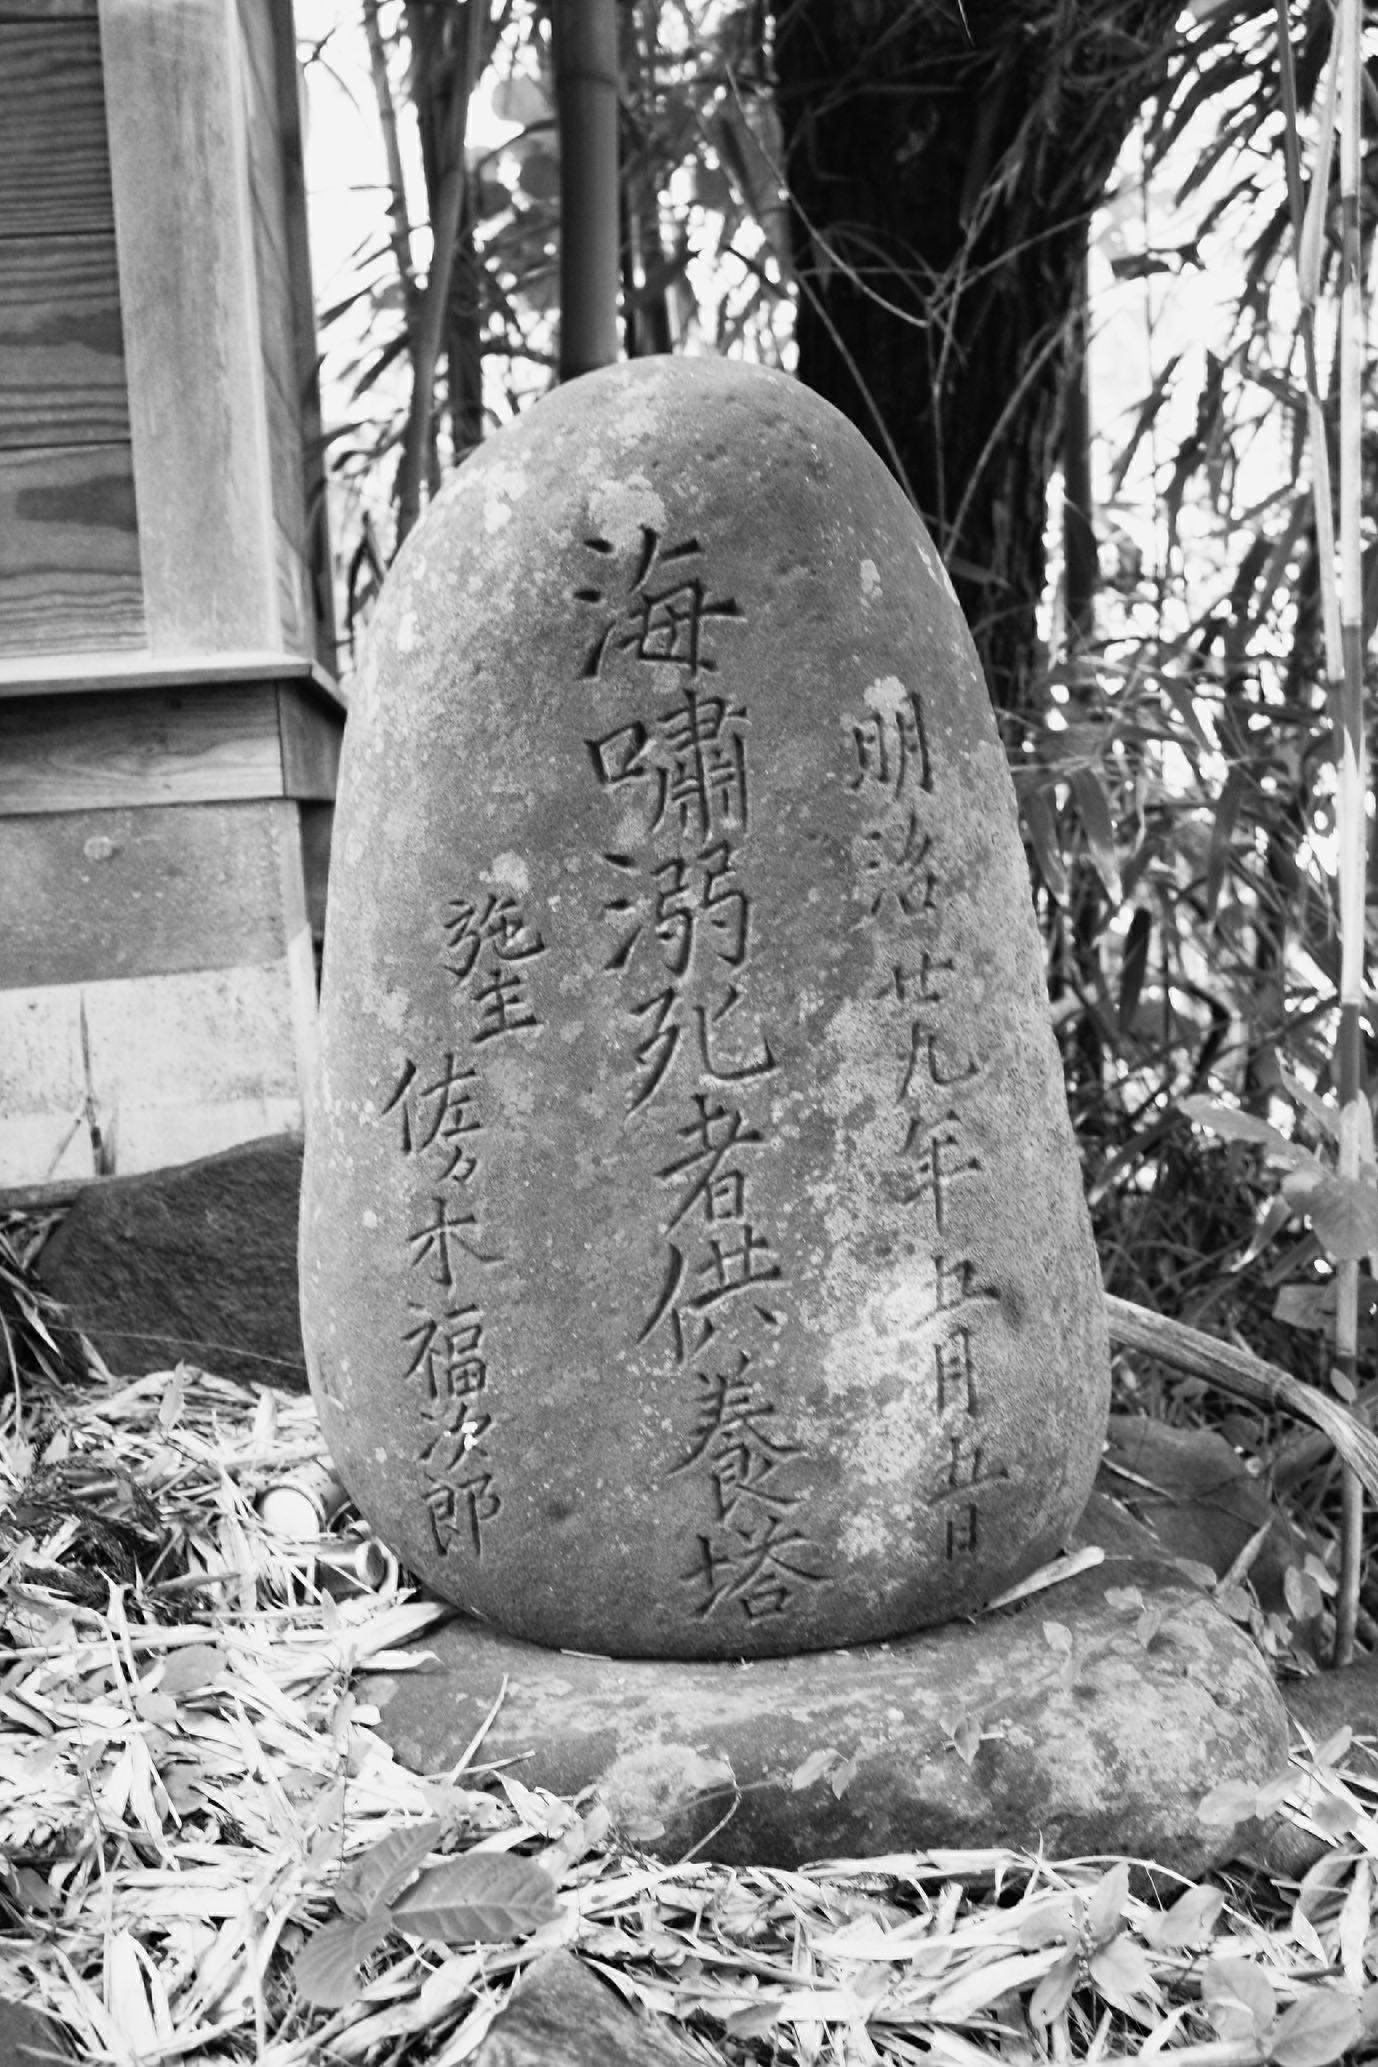 明治廿九年五月五日
海嘯溺死者供養塔
施主 佐々木福次郎